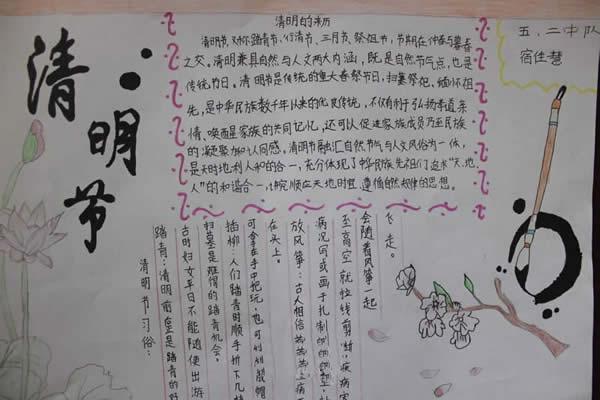 清明节
清明的来历
清明节,又叫踏青节、行清节、三月节、祭祖节,节期在仲春与暮春
之交。清明兼具自然与人文两大内涵,既是自然节气点,也是
传统节日。清明节是传统的重大春祭节日,扫墓祭祀、缅怀祖
先,是中华民族数千年以来的优良传统,不仅有利于弘扬孝道亲
情、唤醒家族的共同记忆,还可以促进家族成员乃至民族
的凝聚力和认同感。清明节融汇自然节气与人文风俗为一体,
是天时地利人和的合一,充分体现了中华民族先祖们追求“天、地、
人”的和谐合一,讲究顺应天地时宜、遵循自然规律的思想。
五、二中队
宿佳慧
清明节习俗:
踏青:清明前后是踏青的好
古时妇女平日不能随便出游
扫墓是难得的踏青机会。
插柳:人们踏青时顺手折下几枝
可拿在手中把玩,也可编成帽
在头上。
放风筝:古人相信
病况写或画于扎制的
至高空就拉线剪断,疾病
会随着风筝一起
飞走。